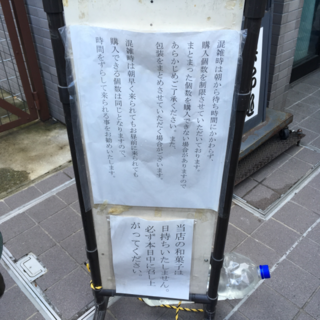 混雑時は朝から待ち時間にかかわらず、
購入個数を制限させていただいております。
まとまった個数を購入できない場合がありますので
あらかじめご了承ください。また、
包装をまとめさせていただく場合がございます
混雑時は朝早く来られてもお昼前に来られても
購入できる個数は同じとなりますので、
時間をずらして来られる事をお勧めいたします。
当店の和菓子は
日持ちいたしません。
必ず本日中に召し上
がってください。